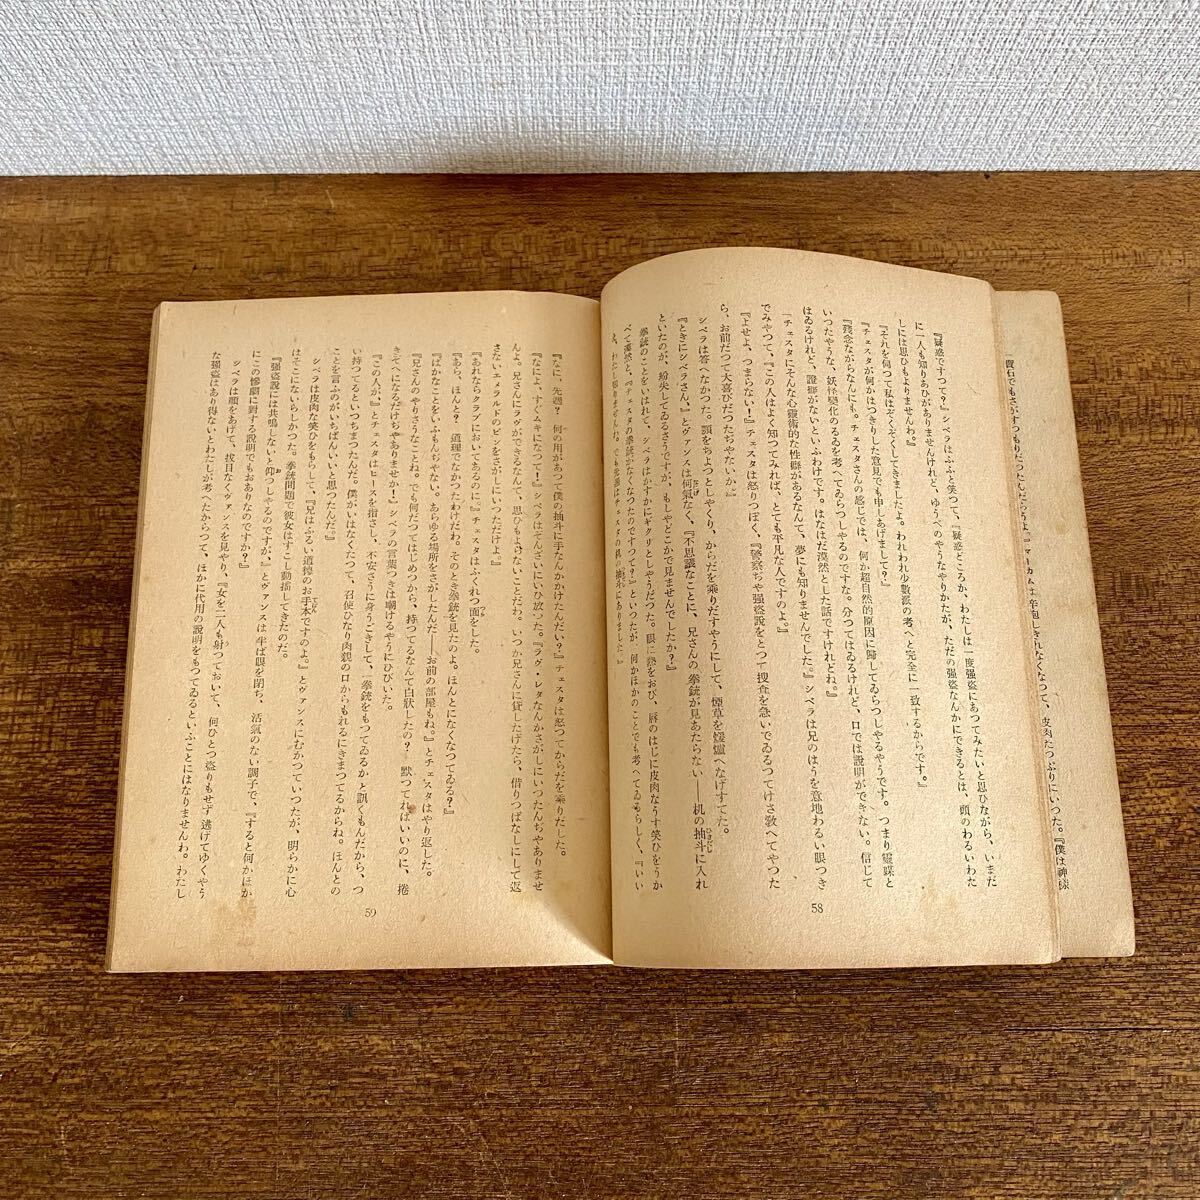 寶石でもさがすつもりだつたんだらうよ。』マーカムは辛抱しきれなくなつて、皮肉たつぷりにいつた。『僕は神樣
『疑惑ですつて？』シベラはふふと笑つて、『疑惑どころか、わたしは一度强盜にあつてみたいと思ひながら、いまだ
に一人も知りあひがありませんけれど、ゆうべのやうなやりかたが、ただの强盜なんかにできるとは、頭のわるいわた
しには思ひもよりませんわ。』
『それを伺つて私はぞくぞくしてきましたよ。われわれ少數派の考へと完全に一致するからです。』
『チェスタが何かはつきりした意見でも申しあげまして？』
『殘念ながらなんにも。チェスタさんの感じでは、何か超自然的原因に歸してゐらつしやるやうです。つまり靈媒と
いつたやうな、妖怪變化のゐを考へてゐらつしやるのですな。分つてはゐるけれど、口では說明ができない。信じて
はゐるけれど、證據がないといふわけです。はなはだ漠然とした話ですけれどね。』
『チェスタにそんな心靈術的な性癖があるなんて、夢にも知りませんでした。』シベラは兄のはうを意地わるい眼つき
でみやつて、『この人はよく知つてみれば、とても平凡な人ですのよ。』
『よせよ、つまらない！』チェスタは怒りつぽく、『警察ぢや强盜說をとつて捜査を急いでゐるつてけさ敎へてやつた
ら、お前だつて大喜びだつたぢやないか。』
シベラは答へなかつた。顎をちよつとしやくり、からだを乘りだすやうにして、煙草を煖爐へなげすてた。
『ときにシベラさん、』とヴァンスは何氣なく、『不思議なことに、兄さんの拳銃が見あたらない――机の抽斗に入れ
といたのが、紛失してゐるさうですが、もしやどこかで見ませんでしたか？』
拳銃のことをいはれて、シベラはかすかにギクリとしたやうだつた。眼に熱をおび、唇のはじに皮肉なうす笑ひをうか
べて漠然と、『チェスタの拳銃がなくなつたのですつて？』といつたが、何かほかのことでも考へてゐるらしく、『いい
え、わたし知りませんわ。でも先週はチェスタの机の抽斗にありました。』
58
『なに、先週？　何の用があつて僕の抽斗に手なんかかけたんだい？』チェスタは怒つてからだを乘りだした。
『なによ、すぐムキになつて！』シベラはぞんざいにいひ放つた。『ラヴ・レタなんかさがしにいつたんぢやありませ
んよ。兄さんにラヴができるなんて、思ひもよらないことだわ。いつか兄さんに貸したげたら、借りつぱなしにして返
さないエメラルドのピンをさがしにいつたんだけよ。』
『あれならクラブにおいてあるのに。』チェスタはふくれつ面をした。
『あら、ほんと？　道理でなかつたわけだわ。そのとき拳銃を見たのよ。ほんとになくなつてゐる？』
『ばかなことをいふもんぢやない。あらゆる場所をさがしたんだ――お前の部屋もね。』とチェスタはやり返した。
『兄さんのやりさうなことね。でも何だつてはじめつから、持つてるなんて白狀したの？　默つてればいいのに、捲
きぞへになるだけぢやありませんか！』シベラの言葉つきは嘲けるやうにひびいた。
『この人が、』とチェスタはヒースを指さし、不安さうに身うごきして、『拳銃をもつてゐるかと訊くもんだから、つ
い持つてるといつちまつたんだ。僕がいはなくたつて、召使ひなり肉親の口からもれるにきまつてるからね。ほんとの
ことを言ふのがいちばんいいと思つたんだ。』
シベラは皮肉な笑ひをもらして、『兄はふるい道德のお手本ですのよ。』とヴァンスにむかつていつたが、明らかに心
はそこにないらしかつた。拳銃問題で彼女はすこし動搖してきたのだ。
『强盜說には共鳴しないと仰つしやるのですが、』とヴァンスは半ば眼を閉ぢ、活氣のない調子で、『すると何かほか
にこの慘劇に對する說明でもおありなのですか？』
シベラは顏をあげて、拔目なくヴァンスを見やり、『女を二人も射つておいて、何ひとつ盜りもせず逃げてゆくやう
な强盜はあり得ないとわたしが考へたからつて、ほかに代用の說明をもつてゐるといふことにはなりませんわ。わたし
59